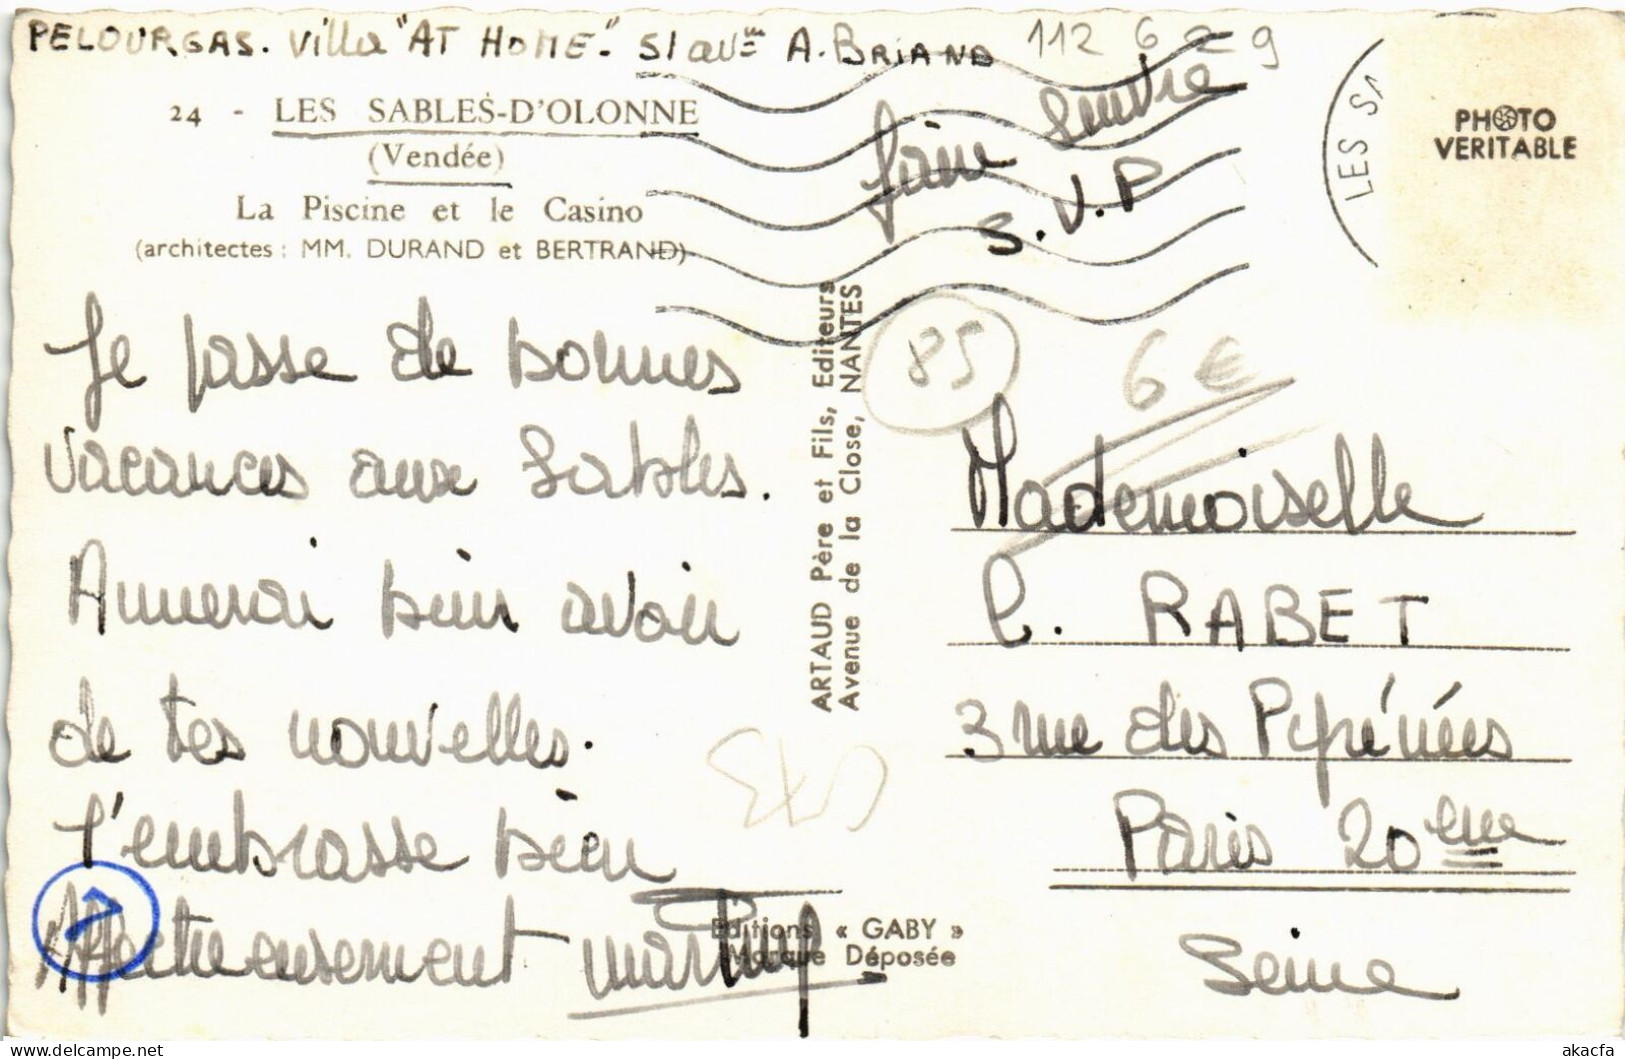 PELOURGAS. Villa "AT HOME". 51 avue A. BRIAND
112 6 2 9
24 - LES SABLES-D'OLONNE
(Vendée)
La Piscine et le Casino
(architectes : MM. DURAND et BERTRAND)
faire suivre
S.V.P
LES SA
PHOTO
VERITABLE
Je passe de bonnes
vacances aux Sables.
Aimerai bien avoir
de tes nouvelles.
T'embrasse bien
Affectueusement
ARTAUD Père et Fils, Editeurs
Avenue de la Close, NANTES
Editions « GABY »
Marque Déposée
85
6 €
Mademoiselle
C. RABET
3 rue des Pyrénées
Paris 20eme
Seine
akacfa